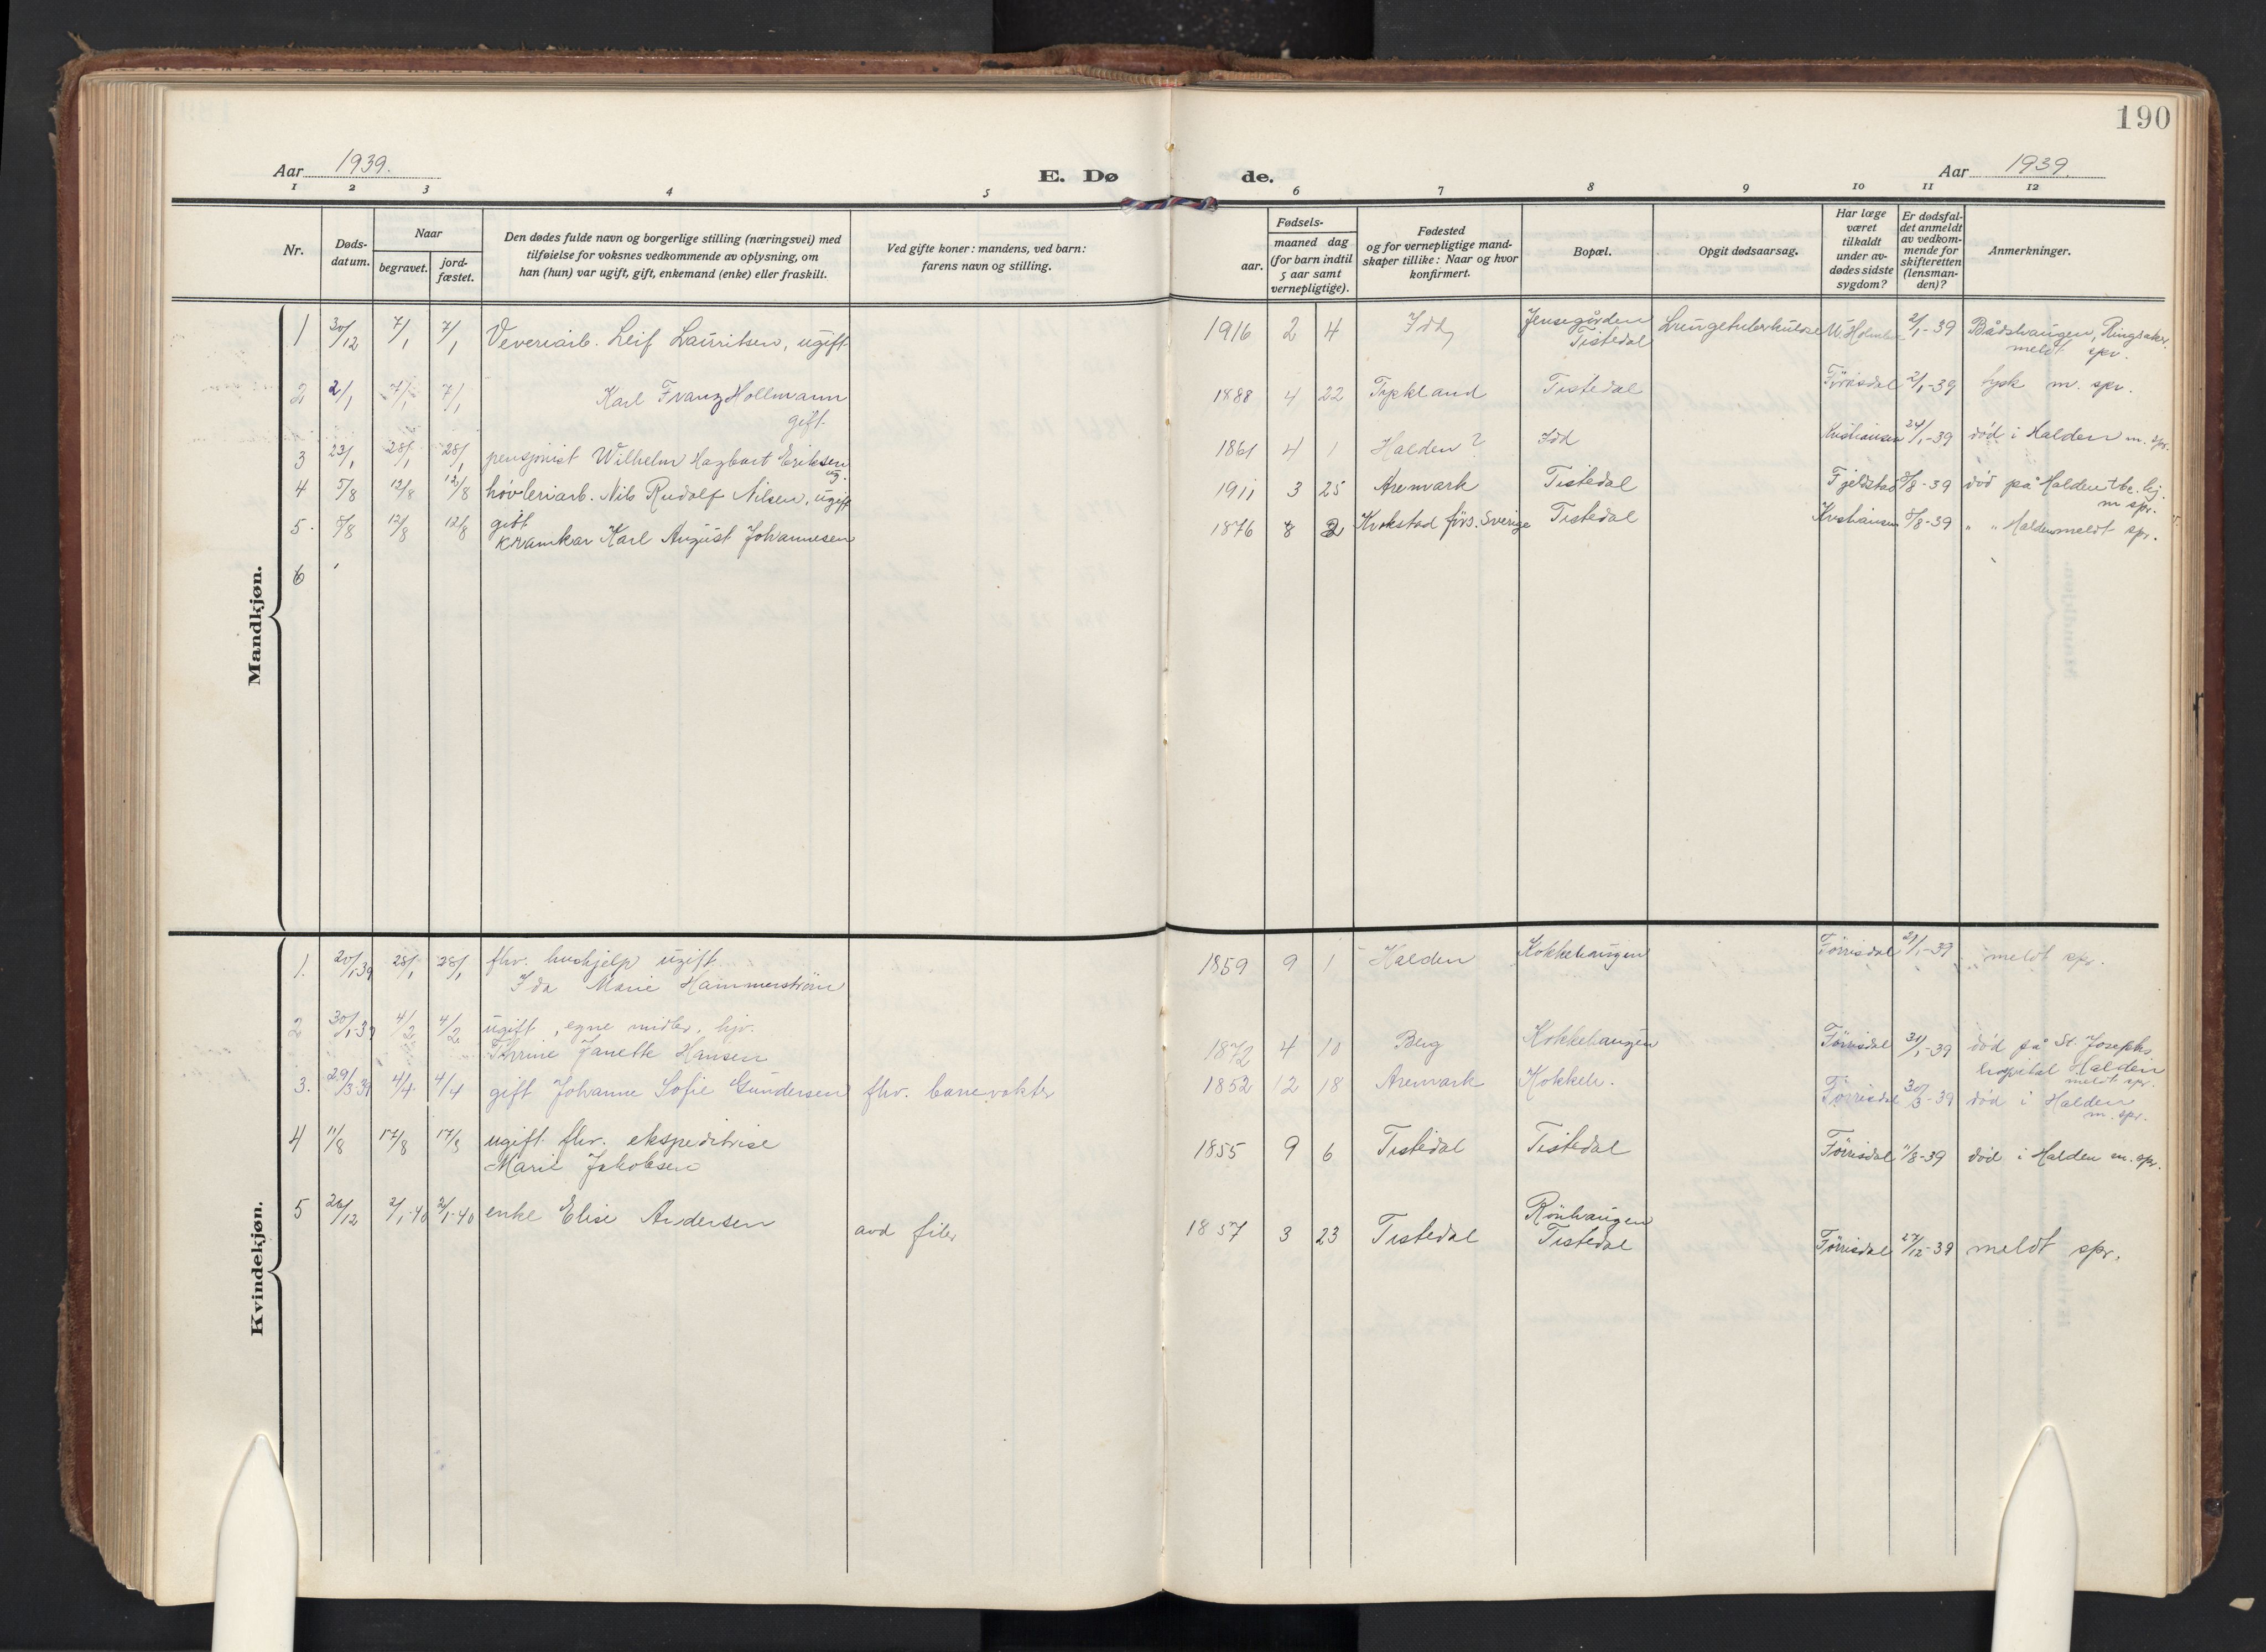 190
Aar 1939.
E. Dø
de.
Aar 1939.
1 2 3 4 5 6 7 8 9 10 11 12
Nr.
Døds-
datum.
Naar
begravet.
jord-
fæstet.
Den dødes fulde navn og borgerlige stilling (næringsvei) med
tilføielse for voksnes vedkommende av oplysning, om
han (hun) var ugift, gift, enkemand (enke) eller fraskilt.
Ved gifte koner: mandens, ved barn:
farens navn og stilling.
Fødsels-
aar.
maaned dag
(for barn indtil
5 aar samt
vernepligtige).
Fødested
og for vernepligtige mand-
skaper tillike: Naar og hvor
konfirmert.
Bopæl.
Opgit dødsaarsag.
Har læge
været
tilkaldt
under av-
dødes sidste
sygdom?
Er dødsfal-
det anmeldt
av vedkom-
mende for
skifteretten
(lensman-
den)?
Anmerkninger.
Mandkjøn.
1 30/12 7/1 7/1 Veveriarb. Leif Lauritsen, ugift. 1916 2 4 Idd Jensegården
Tistedal Lungetuberkulose 2/1-39 Bådshaugen, Ringsaker.
meldt spr.
2 2/1 7/1 7/1 Karl Franz Hollmann
gift. 1888 4 22 Tyskland Tistedal Förrisdal 2/1-39 tysk m. spr.
3 23/1 28/1 28/1 pensjonist Wilhelm Hagbart Eriksen
ug. 1861 4 1 Halden? Idd Kristiansen 24/1-39 död i Halden m. spr.
4 5/8 12/8 12/8 høvleriarb. Nils Rudolf Nilsen, ugift 1911 3 25 Aremark Tistedal Fjeldstad 8/8-39 död på Halden tbc. hj.
m spr.
5. 8/8 12/8 12/8 gift
kramkar Karl August Johannesen 1876 8 2 Krokstad förs. Sverige Tistedal Kristiansen 8/8-39 " " Halden meldt spr.
6
Kvindekjøn.
1. 20/1 39 28/1 28/1 fhv. hushjelp ugift.
Ida Marie Hammerström 1859 9 1 Halden Kokkehaugen Förrisdal 21/1-39 meldt spr.
2 30/1-39 4/2 4/2 ugift, egne midler, hjv.
Thrine Janette Hansen 1872 4 10 Berg Kokkehaugen Förrisdal 31/1-39 död på St. Josephs
hospital Halden
meldt spr.
3. 29/3 39 4/4 4/4 gift Johanne Sofie Gundersen fhv. banevokter 1852 12 18 Aremark Kokkeh. Förrisdal 30/3-39 död i Halden
m. spr.
4 11/8 17/8 17/8 ugift fhv. ekspeditrise
Marie Jakobsen 1855 9 6 Tistedal Tistedal Förrisdal 11/8-39 död i Halden m. spr.
5 26/12 2/1-40 2/1-40 enke Elise Andersen avd filer 1857 3 23 Tistedal Rönhaugen
Tistedal Förrisdal 27/12-39 meldt spr.